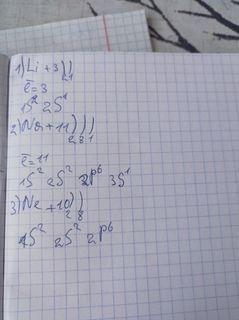 1) Li +3 ) )
2 1
ē = 3
1S² 2S¹
2) Na +11 ) ) )
2 8 1
ē = 11
1S² 2S² 2p⁶ 3S¹
3) Ne +10 ) )
2 8
1S² 2S² 2p⁶